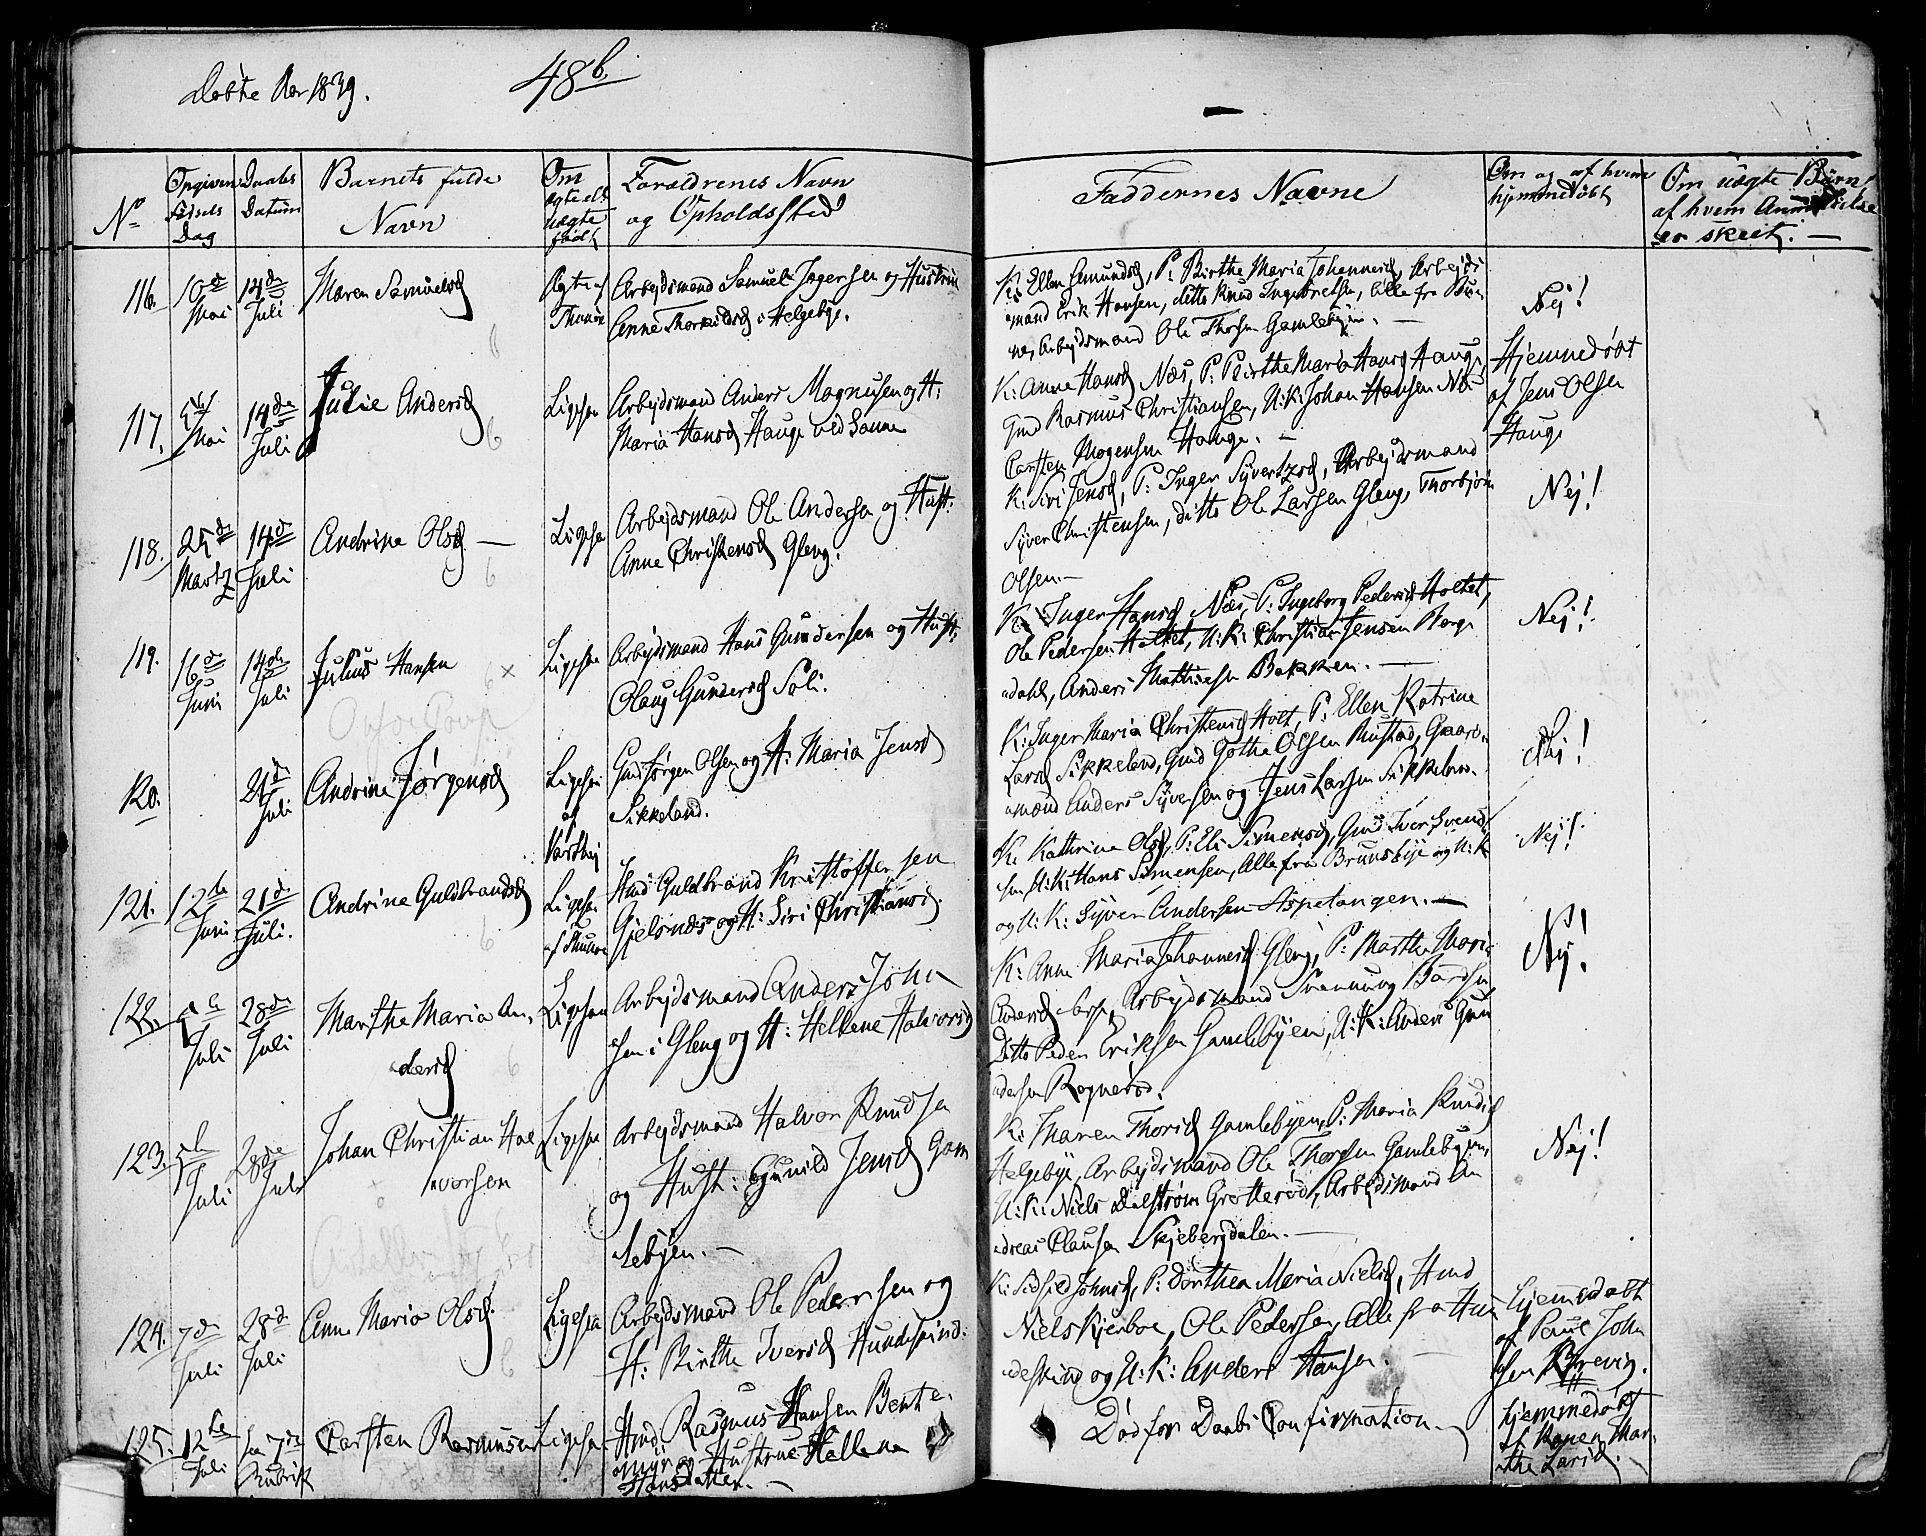 Døbte Aar 1839.
48b.
No
Opgiven Fødsels Dag
Daabs Datum
Barnets fulde Navn
Om ægte ell. uægte født
Forældrenes Navn og Opholdssted
Faddernes Navne
Om og af hvem hjemmedøbt
Om uægte Børn af hvem Anmeldelse er skeet. —
116.
10de Mai
14de Juli
Maren Samuelsd
Ægte af
Arbejdsmand Samuel Ingersen og Hustrue
Anne Thorkildsd i Helgebye.
K: Ellen Emundsd, P: Birthe Maria Johannesd, Arbejds
mand Erik Hansen, ditto Knud Ingebretsen, Alle fra
Arbejdsmand Ole Thorsen Gamlebyen. —
Nej!
117.
Mai
14de Juli
Julie Andersd
Ligesaa
Arbejdsmand Anders Mogensen og H:
Maria Hansd Hauge ved Sanne
K: Anne Hansd Næs, P: Birthe Maria Hansd Hauge,
Gmd Rasmus Christiansen, U:K: Johan Hansen Næs
Carsten Mogensen Hauge. —
Hjemmedøbt
af Jens Olsen
Hauge
118.
25de Martz
14de Juli
Andrine Olsd —
Ligesaa
Arbejdsmand Ole Andersen og Hust:
Anne Christensd Gleng.
K: Siri Jensd, P: Inger Syvertsd, Arbejdsmand
Syver Christensen, ditto Ole Larsen Gleng, Thorbjørn
Olsen. —
Nej!
119.
16de Juni
14de Juli
Julius Hansen
Ligesaa
Arbejdsmand Hans Gundersen og Hust:
Olaug Gundersd Soli.
K: Inger Hansd Næs, P: Ingeborg Pedersd Holtet,
Ole Pedersen Holtet, U:K: Christian Jensen Borge
dahl, Anders Mathisen Bakken. —
Nej!
120.
21de Juli
Andrine Jørgensd
Ligesaa
af
Varthej
Gmd Jørgen Olsen og H: Maria Jensd
Sikkeland.
K: Inger Maria Christensd Holt, P: Ellen Katrine
Larsd Sikkeland, Gmd Gothe Olsen Rustad, Gaard
mand Anders Syversen og Jens Larsen Sikkeland.
Nej!
121.
12te Juni
21de Juli.
Andrine Guldbrandsd
Ligesaa
Hmd Guldbrand Kristoffersen
Gjelsnæs og H: Siri Christiansd.
K: Kathrine Olsd, P: Eli Simensd, Gmd Iver Svend
sen U:K: Hans Simensen, Alle fra Brunsbye og U:K
og U:K: Syver Andersen Aspetangen. —
Nej!
122.
Juli
28de Juli
Marthe Maria An
dersd
Ligesaa
Arbejdsmand Anders John
sen i Gleng og H: Hellene Halvorsd
K: Anne Maria Johannesd Gleng, P: Marthe Maria
Andersd Arbejdsmand Svennung Bardsen
Ditto Peder Eriksen Gamlebyen, U:K: Anders Gun
dersen Rognerød.
Nej!
123.
Juli
28de Juli
Johan Christian Hal
vorsen
Ligesaa
Arbejdsmand Halvor Knudsen
og Hust: Gunild Jensd Gam
lebyen. —
K: Maren Thorisd Gamlebyen, P: Maria Knudsd
Helgebye, Arbejdsmand Ole Thorsen Gamlebyen,
U:K: Niels Dalstrøm Grotterød, Arbejdsmand An
dreas Clausen Skjebergdalen. —
Nej!
124.
7de Juli
28de Juli
Anne Maria Olsd.
Ligesaa
Arbejdsmand Ole Pedersen og
H: Birthe Iversd Hundskind.
K: Johnsd, P: Dorthea Maria Nielsd, Hmd
Niels Kjerboe, Ole Pedersen, Alle fra Hun
deskind og U:K: Anders Hansen. —
hjemmedøbt
af Paul John
sen Brevig.
125.
12te Juli
Rubrik
Carsten Rasmusen
Ligesaa
Hmd. Rasmus Hansen Bente
myr og Hustrue Hellena
Hansdatter. —
Død før Daabs Confirmation. —
hjemmedøbt
af Karen Mar
the Larsd.